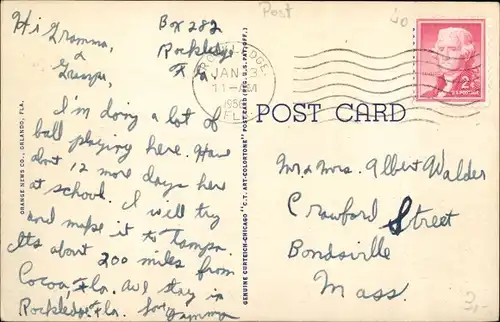 Post
Hi Gramma,
&
Grampa,
Box 282
Rockledge
Fla
ROCKLEDGE.
JAN 3
11-AM
FLA
2¢
U.S. POSTAGE
POST CARD
I'm doing a lot of
ball playing here. Have
about 12 more days here
at school. I will try
and make it to Tampa.
Its about 200 miles from
Cocoa, Fla. We stay in
Rockledge Fla.
Mr & Mrs. Albert Walder
Crawford Street
Bondsville
Mass.
ORANGE NEWS CO., ORLANDO, FLA.
GENUINE CURTEICH-CHICAGO "C.T. ART-COLORTONE" POST CARD (REG. U.S. PAT. OFF.)